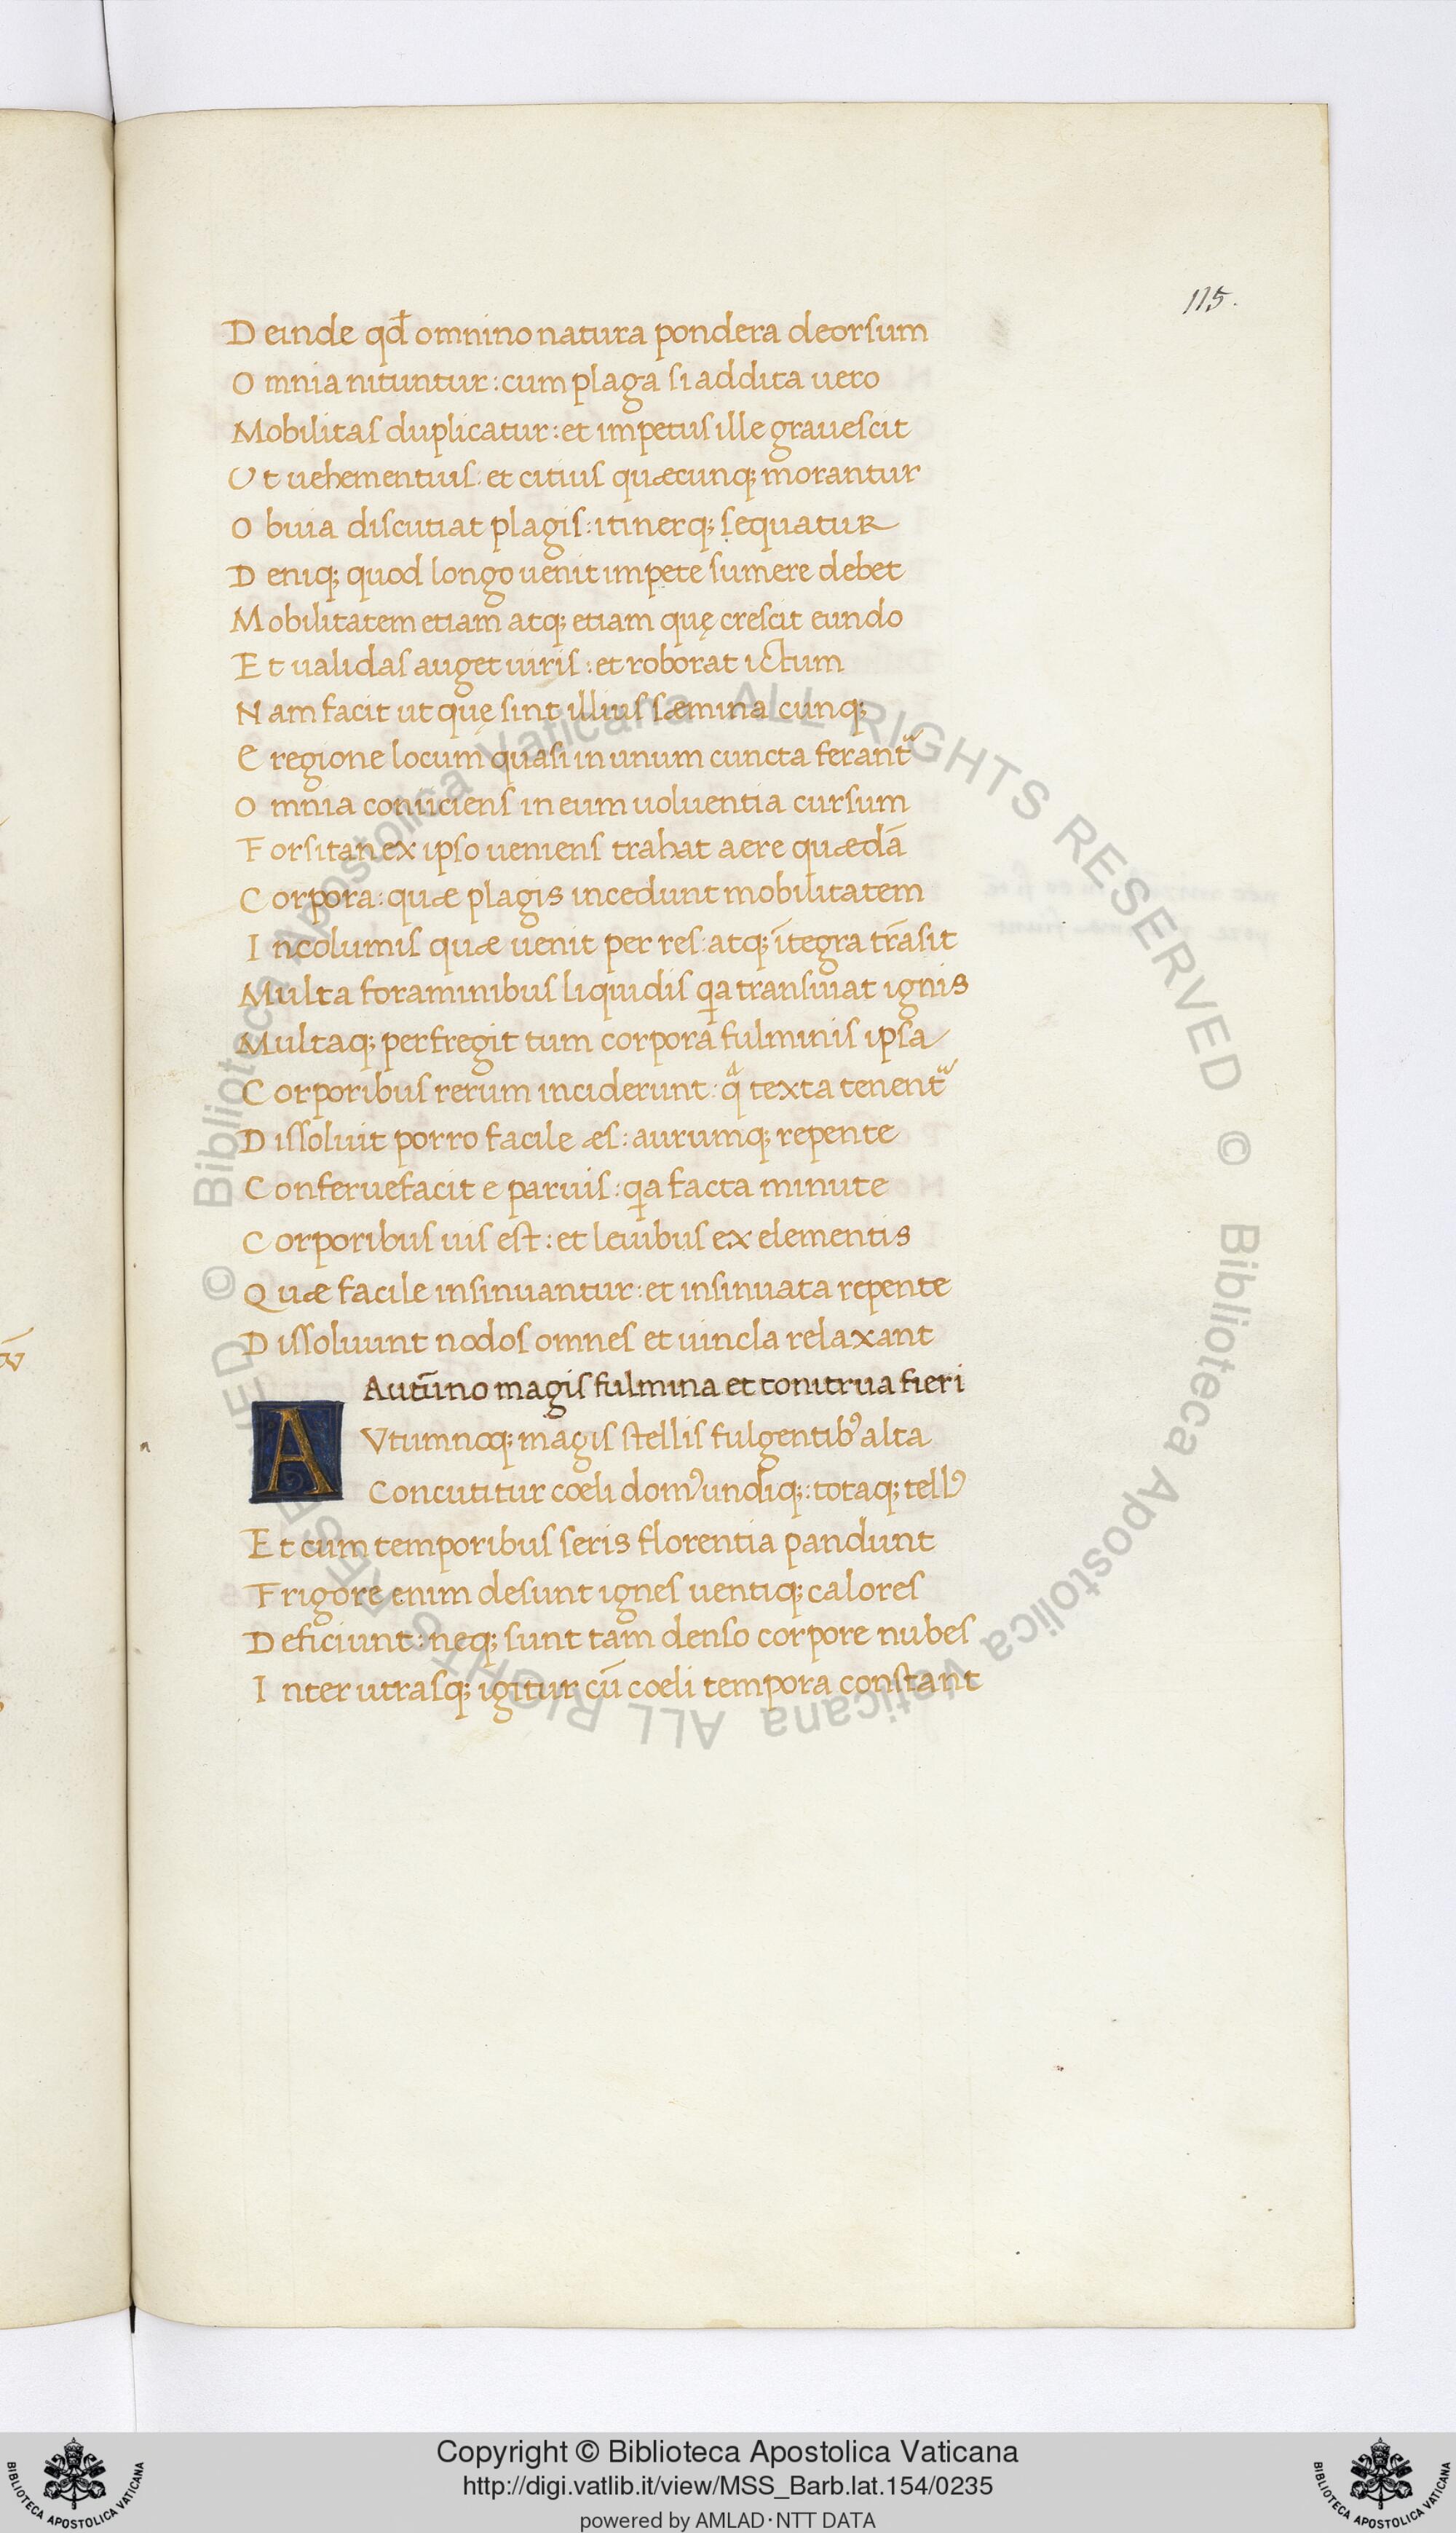 115.
Deinde qđ omnino natura pondera deorsum
Omnia nituntur: cum plaga si addita uero
Mobilitas duplicatur: et impetus ille grauescit
Ut uehementius. et citius quæcunq; morantur
Obuia discutiat plagis: itinerq; sequatur
Deniq; quod longo uenit impete sumere debet
Mobilitatem etiam atq; etiam quę crescit eundo
Et ualidas auget uiris: et roborat ictum
Nam facit ut quę sint illius sæmina cunq;
E regione locum quasi in unum cuncta ferantᷣ
Omnia coniiciens in eum uoluentia cursum
Forsitan ex ipso ueniens trahat aere quædā
Corpora: quæ plagis incedunt mobilitatem
Incolumis quæ uenit per res: atq; ītegra trāsit
Multa foraminibus liquidis qa transuiat ignis
Multaq; perfregit tum corpora fulminis ipsa
Corporibus rerum inciderunt: qᵃ texta tenentᷣ
Dissoluit porro facile æs: aurumq; repente
Conferuefacit e paruis: qa facta minute
Corporibus uis est: et leuibus ex elementis
Quæ facile insinuantur: et insinuata repente
Dissoluunt nodos omnes et uincla relaxant
Autūno magis fulmina et tonitrua fieri
AVtumnoq; magis stellis fulgentibꝰ alta
Concutitur coeli domꝰ undiq;: totaq; tellꝰ
Et cum temporibus seris florentia pandunt
Frigore enim desunt ignes uentiq; calores
Deficiunt: neq; sunt tam denso corpore nubes
Inter utrasq; igitur cū coeli tempora constant
© Biblioteca Apostolica Vaticana ALL RIGHTS RESERVED © Biblioteca Apostolica Vaticana ALL RIGHTS RESERVED
Copyright © Biblioteca Apostolica Vaticana
http://digi.vatlib.it/view/MSS_Barb.lat.154/0235
powered by AMLAD·NTT DATA
BIBLIOTECA APOSTOLICA VATICANA
BIBLIOTECA APOSTOLICA VATICANA